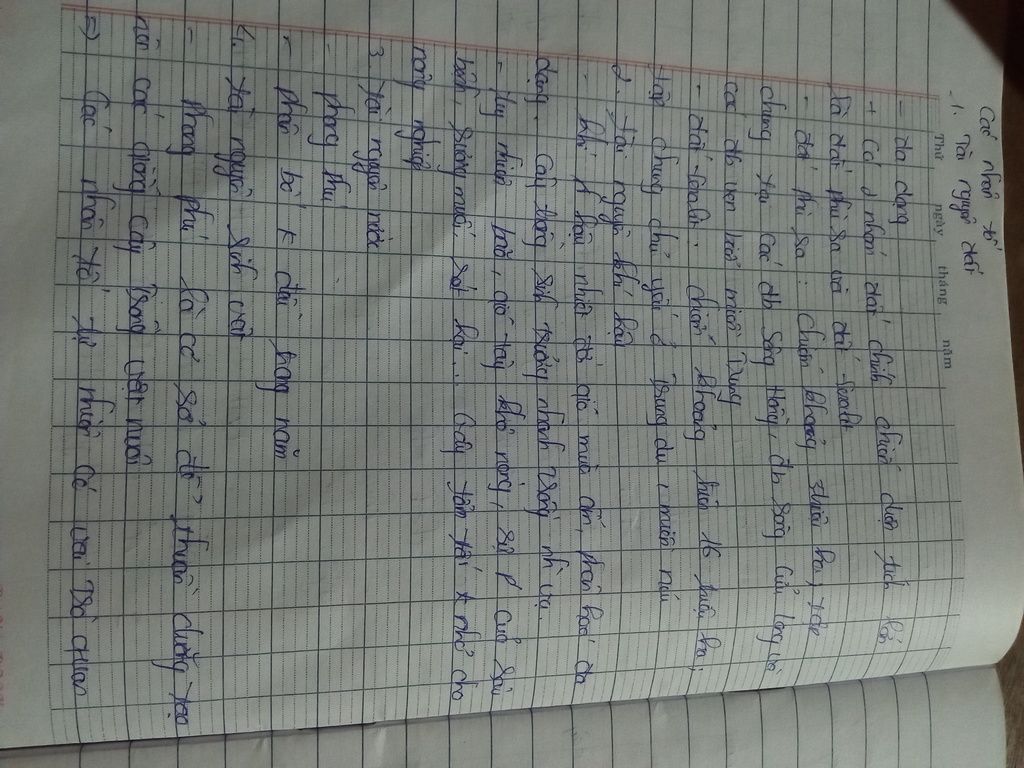 Các nhân tố
1. Tài nguyên đất
Thứ ngày tháng năm
- đa dạng
+ Có 2 nhóm đất chính chiếm diện tích lớn
là đất phù sa và đất feralit
- đất phù sa: chiếm khoảng triệu ha, tập
chung tại các đb Sông Hồng, đb sông Cửu Long và
các đb ven biển miền Trung
- đất feralit: chiếm khoảng trên 16 triệu ha,
tập chung chủ yếu ở trung du, miền núi
2. Tài nguyên khí hậu
- khí hậu nhiệt đới gió mùa ẩm, phân hoá đa
dạng. Cây trồng sinh trưởng nhanh trồng nh vụ.
- tuy nhiên bão, gió tây khô nóng, sự p của sâu
bệnh, sương muối, rét hại... Gây tổn thất k nhỏ cho
nông nghiệp
3 Tài nguyên nước
- phong phú
- phân bố k đều trong năm
4. Tài nguyên sinh vật
- phong phú là cơ sở để thuần dưỡng tạo
nên các giống cây trồng vật nuôi
=) Các nhân tố tự nhiên có vai trò quan